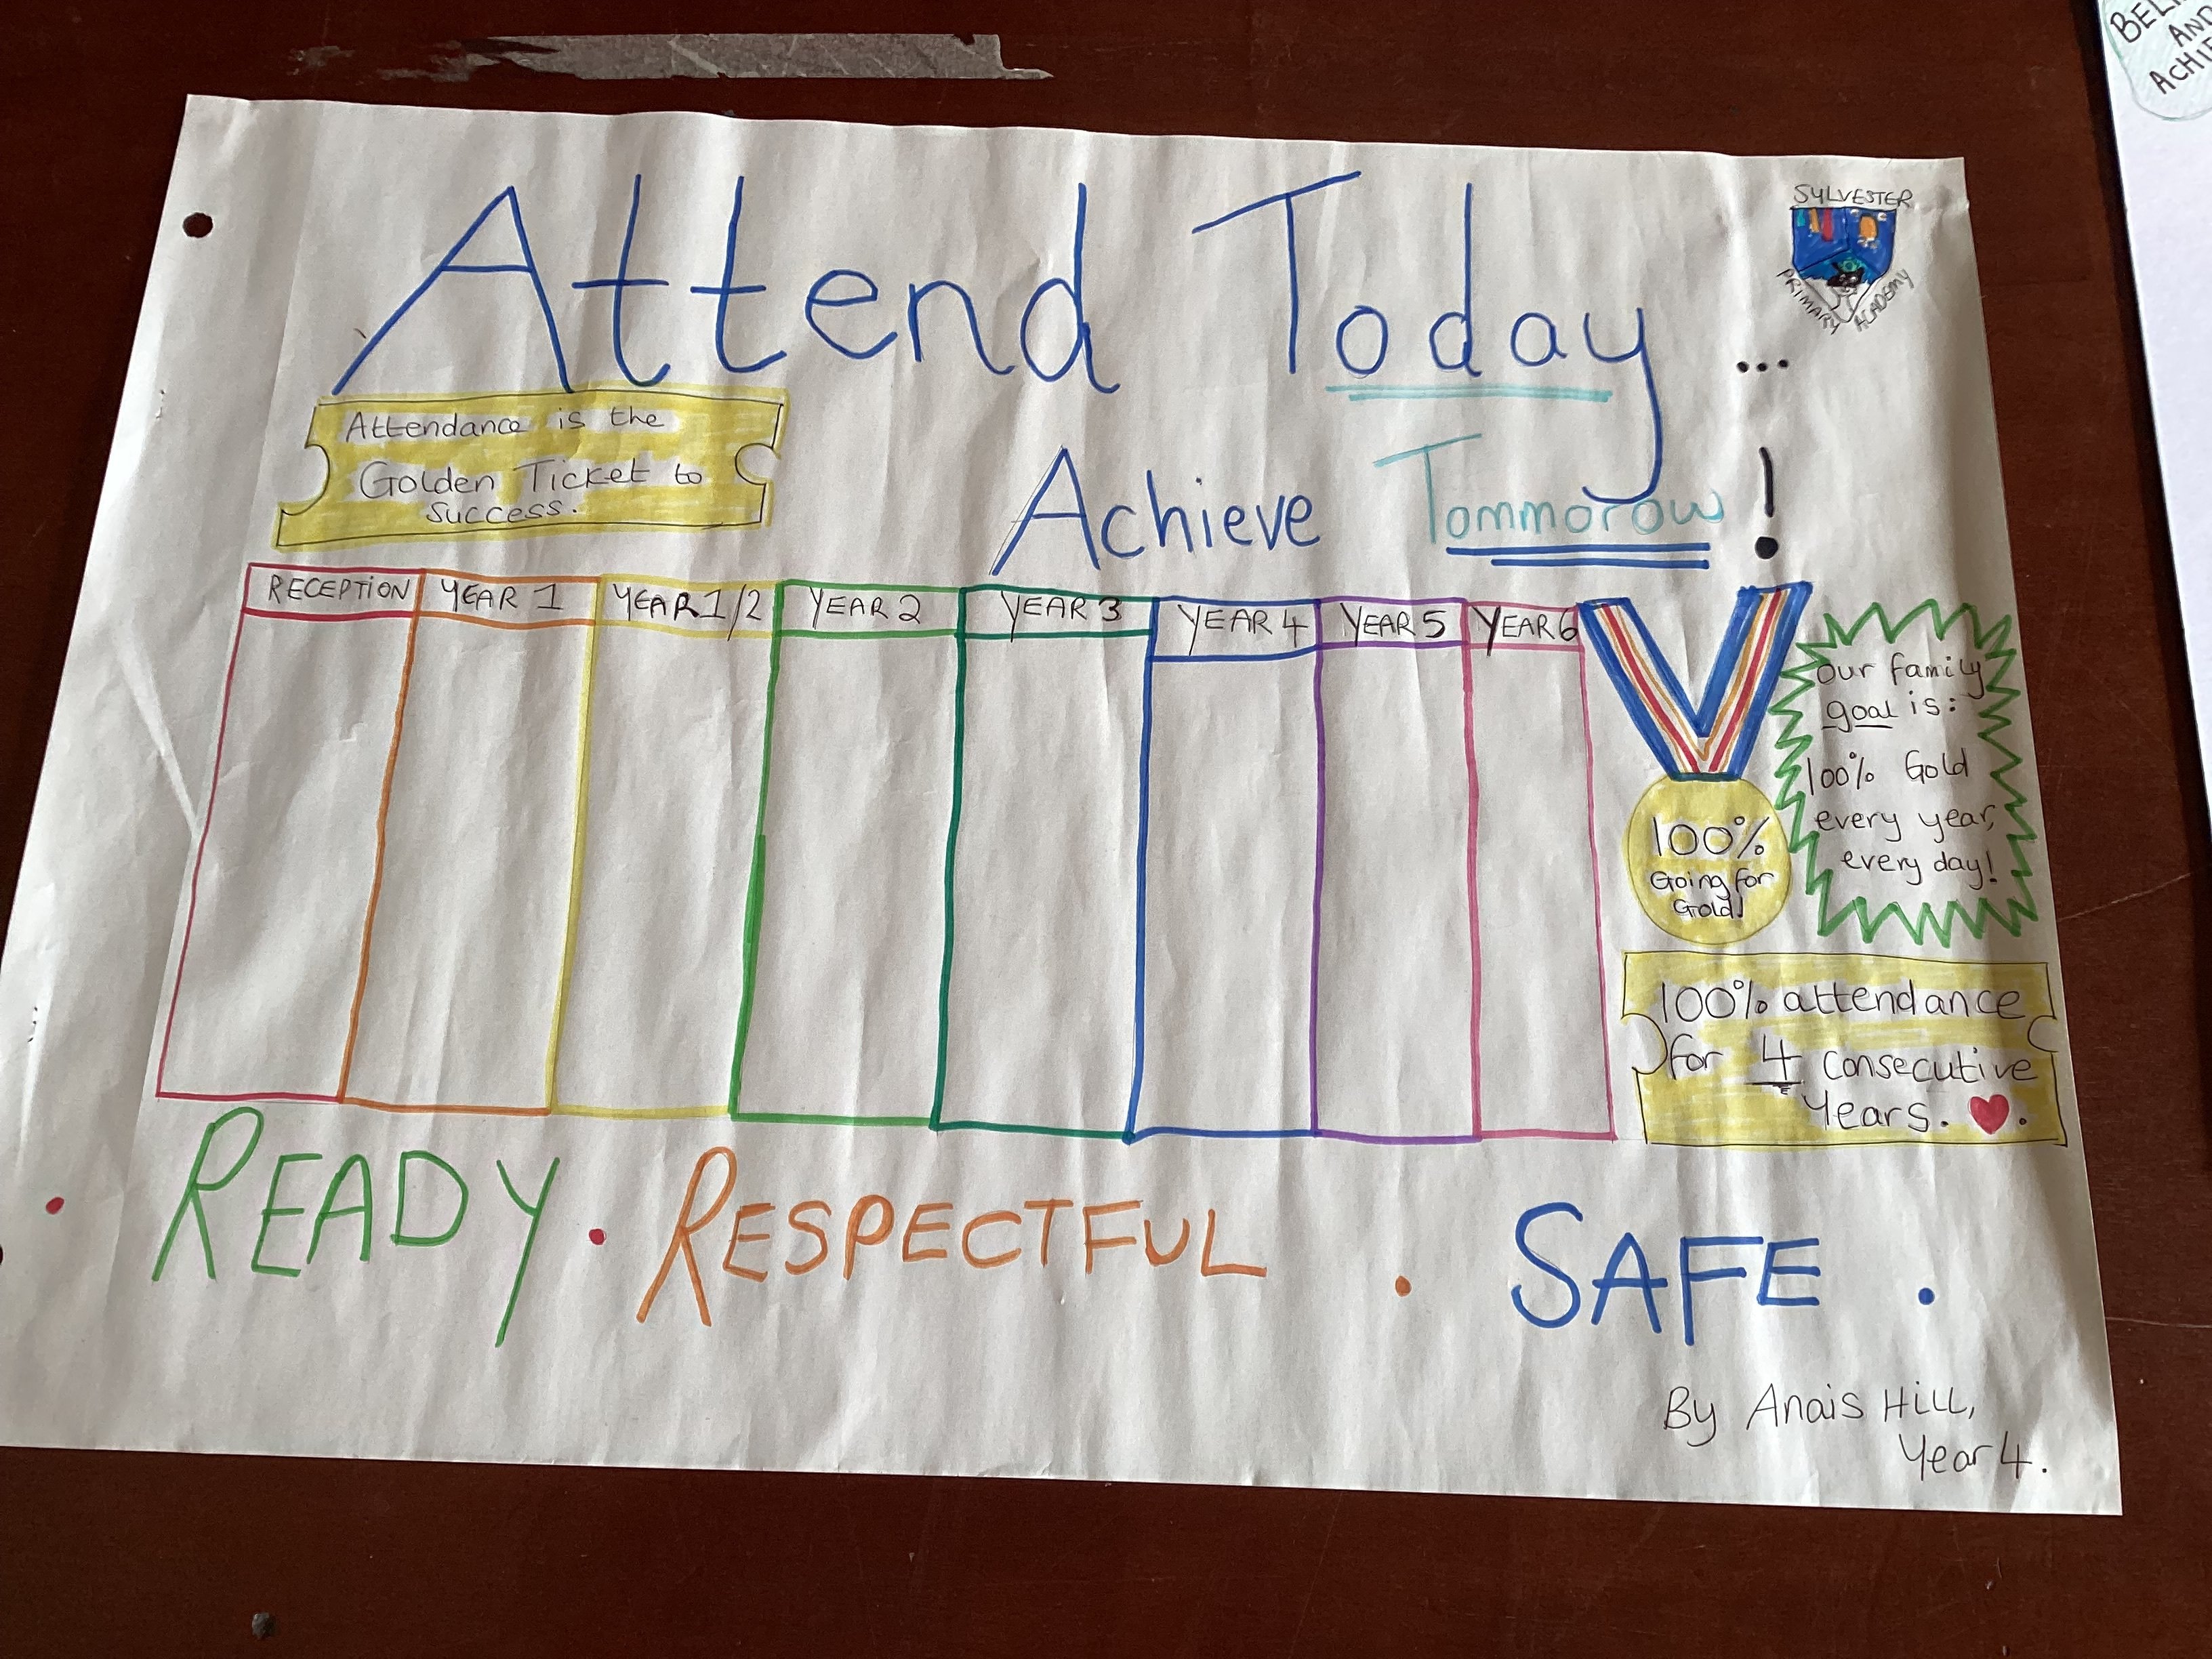 Attend Today ...
SYLVESTER
PRIMARY ACADEMY
Attendance is the
Golden Ticket to
Success.
Achieve Tommorow !
RECEPTION YEAR 1 YEAR 1/2 YEAR 2 YEAR 3 YEAR 4 YEAR 5 YEAR 6
Our family
goal is:
100% Gold
every year,
every day!
100%
Going for
Gold!
100% attendance
for 4 consecutive
Years.
• READY • RESPECTFUL • SAFE •
By Anais Hill,
Year 4.
AND